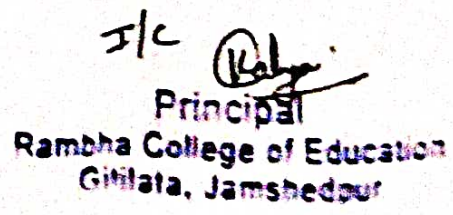 I/C
Principal
Rambha College of Education
Gitilata, Jamshedpur